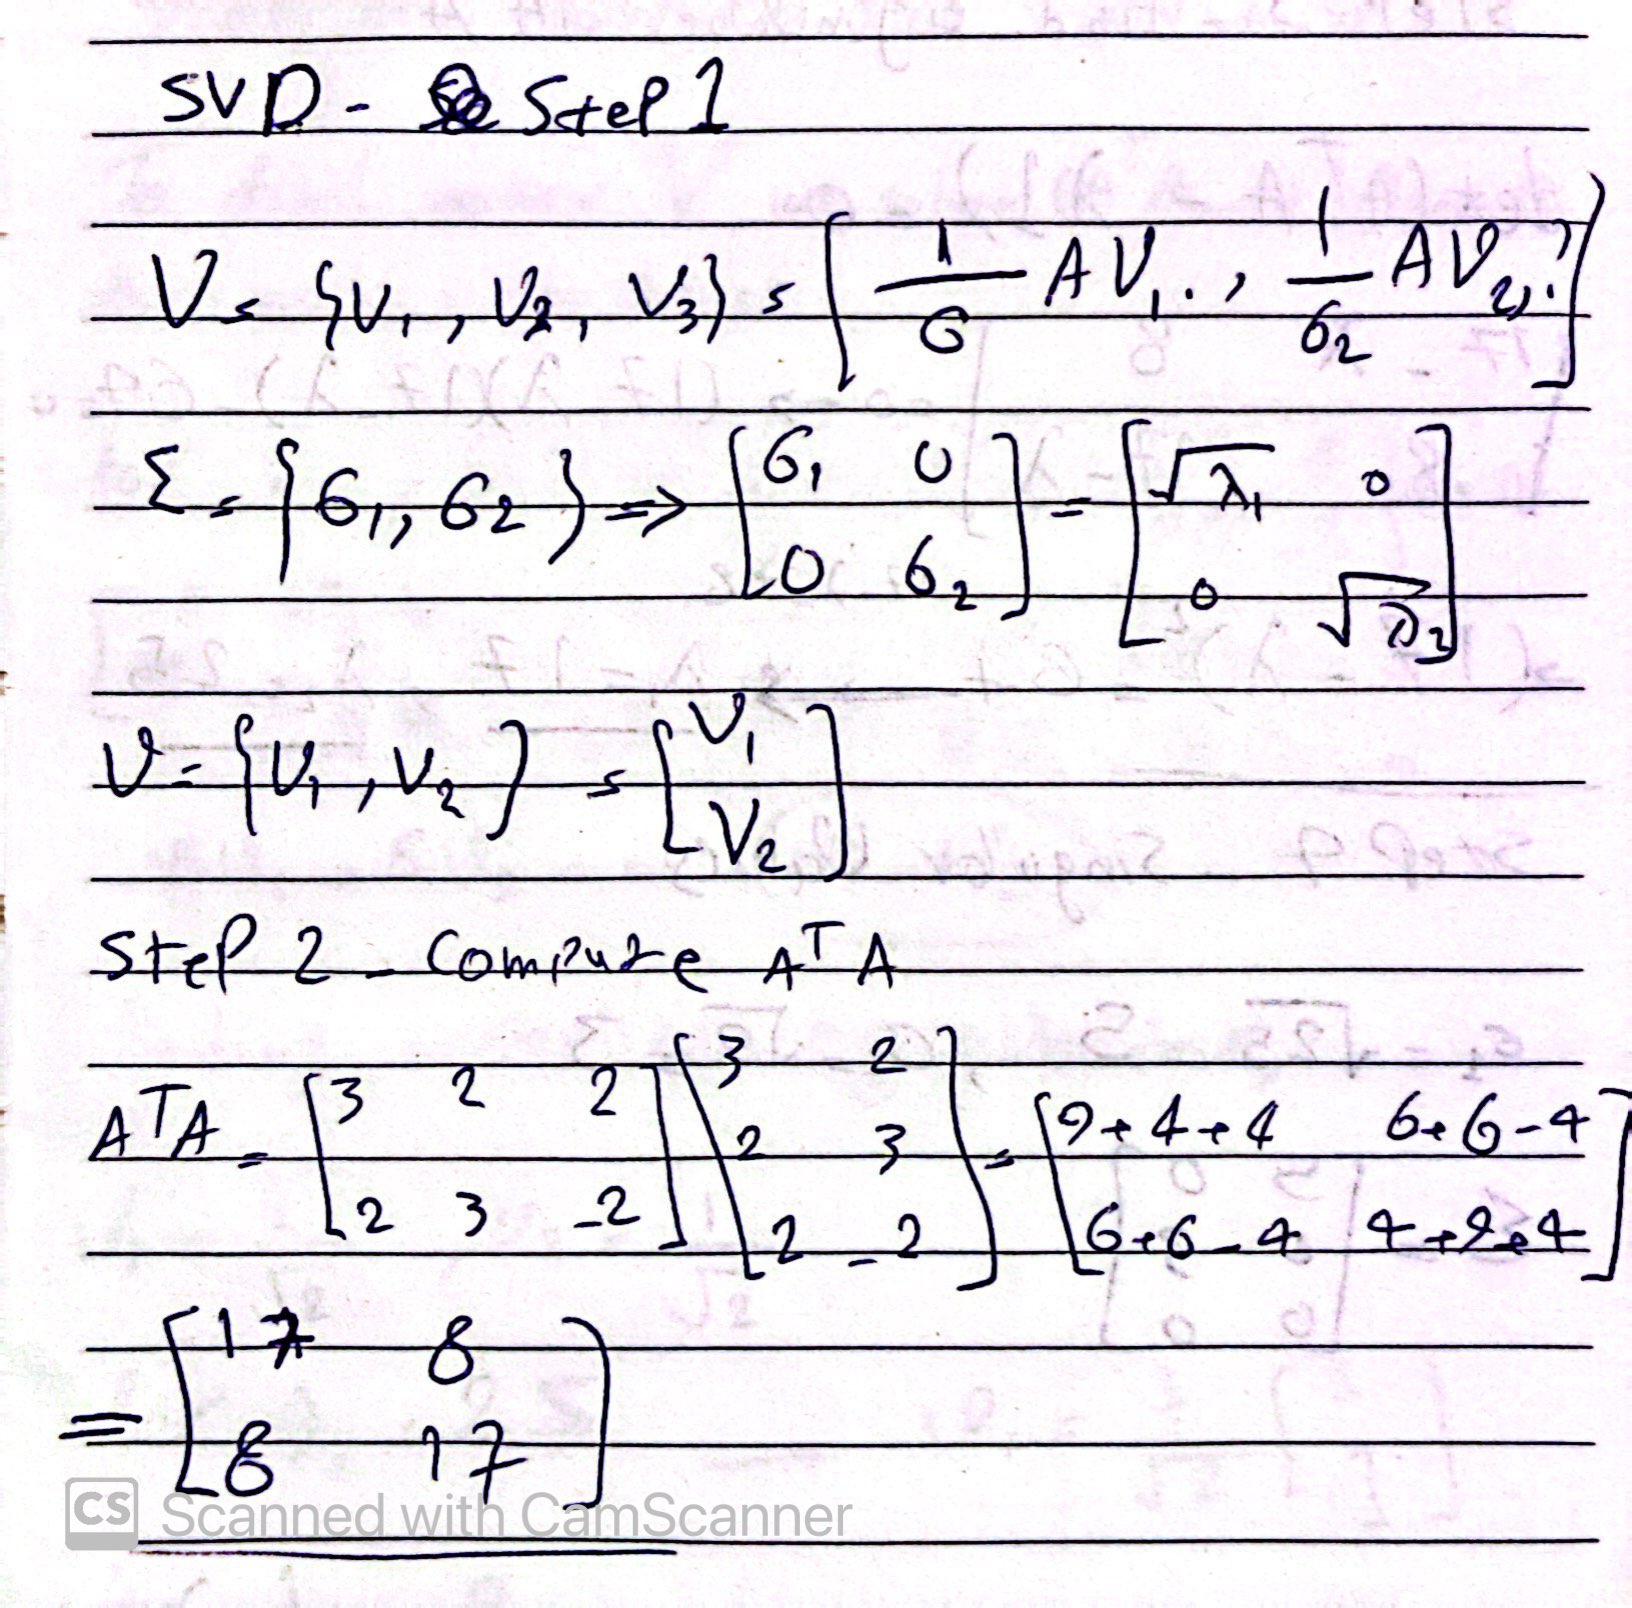 SVD - Step 1
V = {v₁, v₂, v₃} = [1/6 AV₁., 1/6₂ AV₂,.]
Σ = {6₁, 6₂} ⇒ [6₁ 0; 0 6₂] = [√λ₁ 0; 0 √λ₂]
V = {V₁, V₂} = [V₁; V₂]
Step 2 - Compute AᵀA
AᵀA = [3 2 2; 2 3 -2] [3 2; 2 3; 2 -2] = [9+4+4 6+6-4; 6+6-4 4+9+4]
= [17 8; 8 17]
CS Scanned with CamScanner